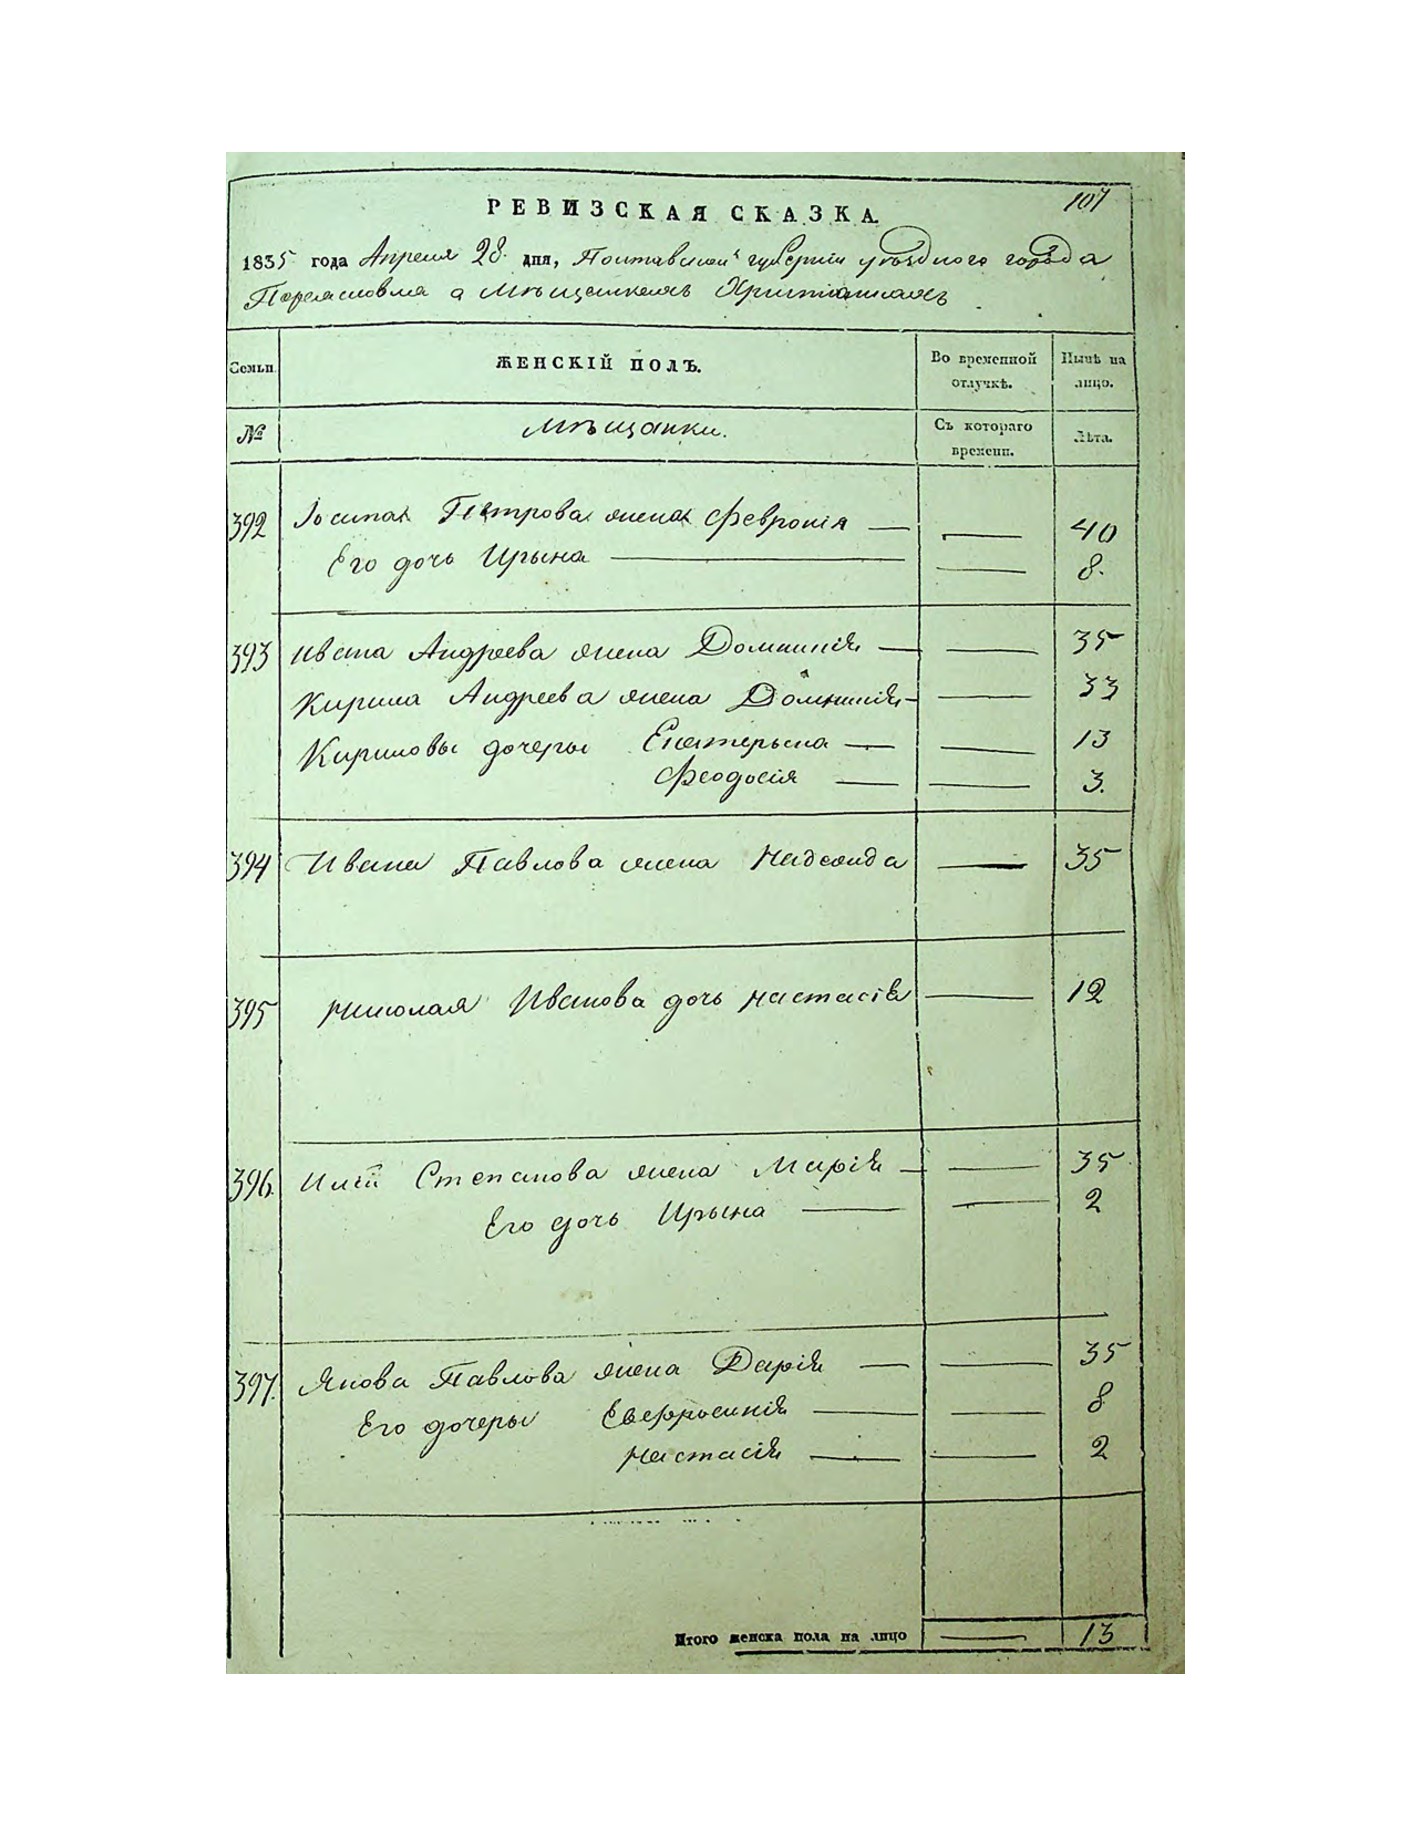 107
РЕВИЗСКАЯ СКАЗКА.
1835 года Апреля 28 дня, Полтавской губерніи уѣзднаго города
Переяславля о мѣщанкахъ Христіанкахъ
Семьи. ЖЕНСКІЙ ПОЛЪ. Во временной отлучкѣ. Нынѣ на лицо.
№ Мѣщанки. Съ котораго времени. Лѣта.
392 Іосипа Петрова жена Февронія — — 40
Его дочь Ирына — — 8.
393 Ивана Андреева жена Домникія — — 35
Кирила Андреева жена Домникія — — 33
Кириловы дочеры Екатерына — — 13
Феодосія — — 3.
394 Ивана Павлова жена Надежда — 35
395 Николая Иванова дочь Настасія — 12
396. Иліи Степанова жена Марія — — 35
Его дочь Ирына — — 2
397. Якова Павлова жена Дарія — — 35
Его дочеры Евфросинія — — 8
Настасія — — 2
Итого женска пола на лицо — 13